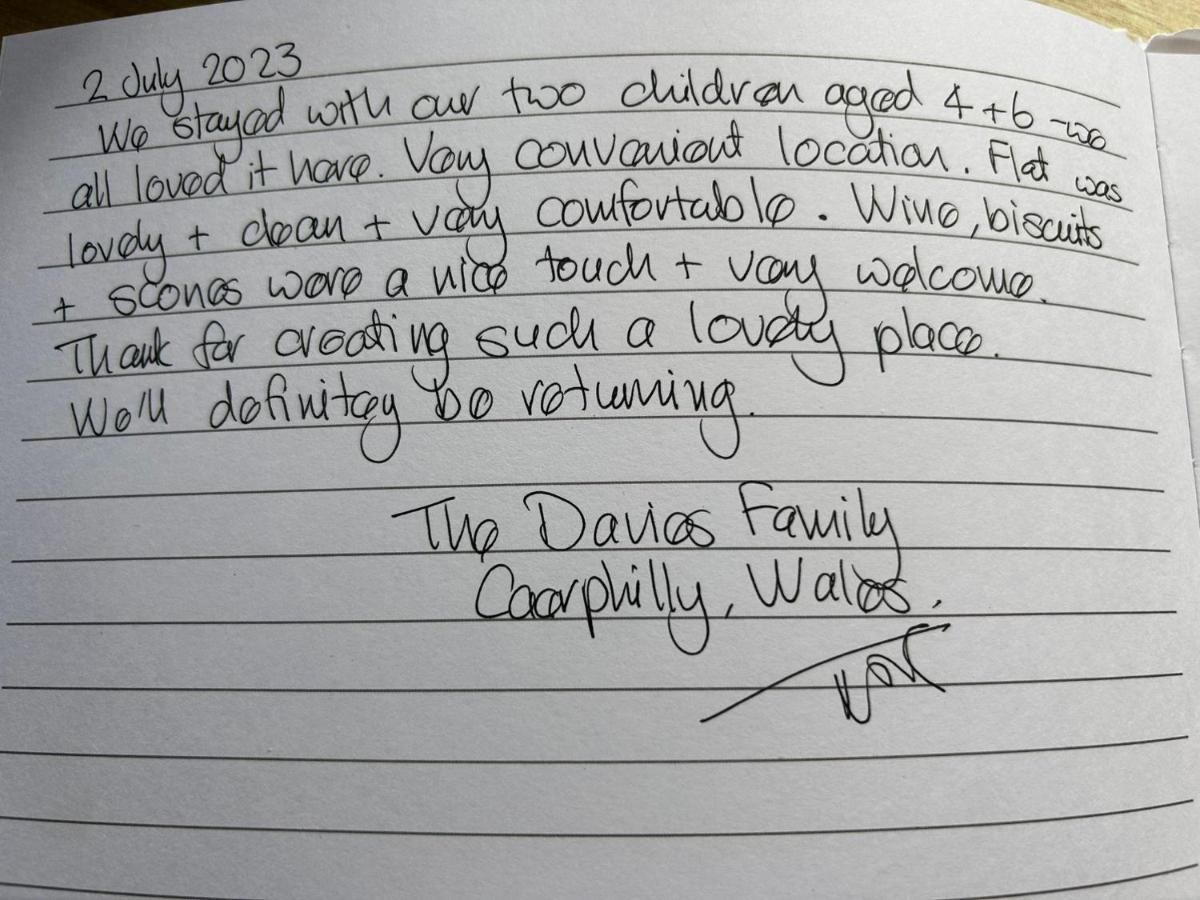 2 July 2023
We stayed with our two children aged 4 + 6 - we
all loved it here. Very convenient location. Flat was
lovely + clean + very comfortable. Wine, biscuits
+ scones were a nice touch + very welcome.
Thank for creating such a lovely place.
We'll definitey be returning.
The Davies Family
Caerphilly, Wales.